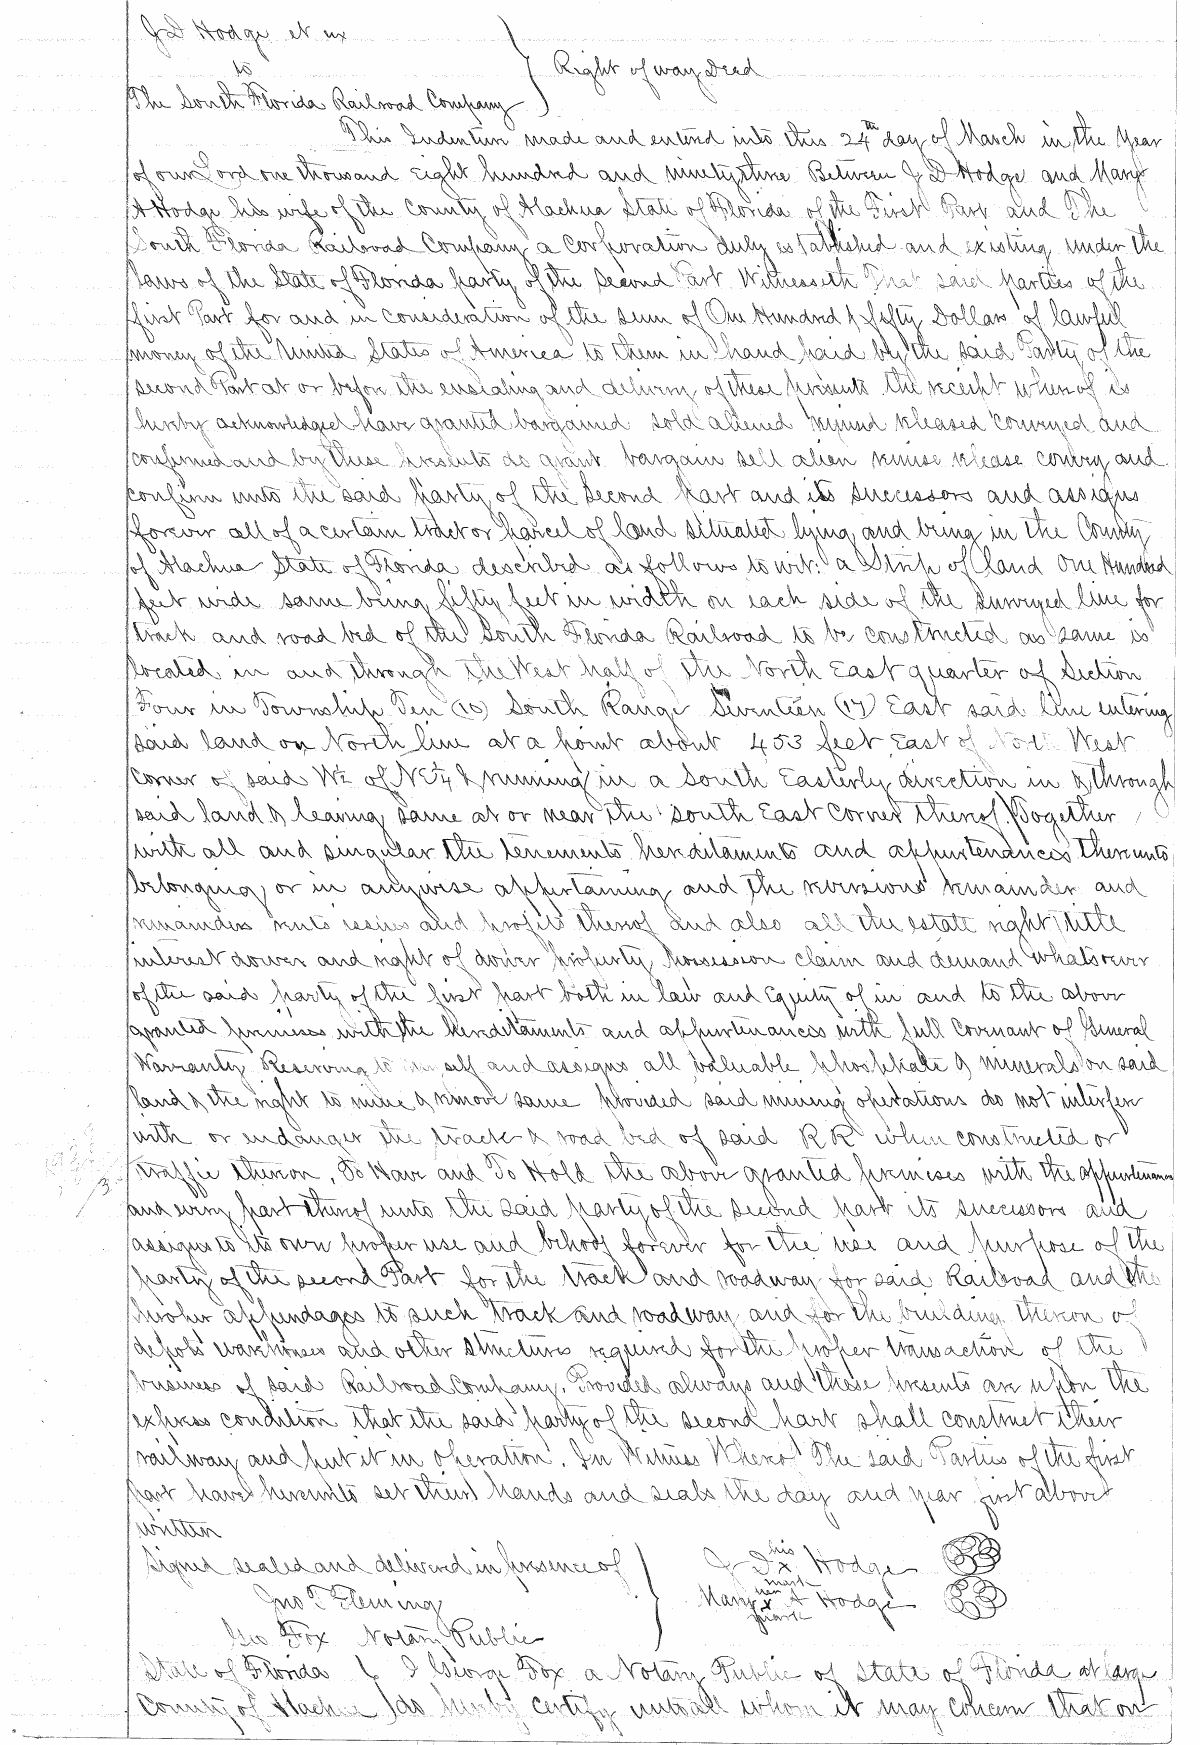 J D Hodge et ux
to
Right of way Deed
The South Florida Railroad Company
This Indenture made and entered into this 24th day of March in the Year
of our Lord one thousand Eight hundred and ninety three Between J D Hodge and Mary
A Hodge his wife of the County of Alachua State of Florida of the First Part and The
South Florida Railroad Company a Corporation duly established and existing under the
laws of the State of Florida party of the Second Part Witnesseth That said parties of the
first Part for and in consideration of the sum of One Hundred & fifty Dollars of lawful
money of the United States of America to them in hand paid by the said Party of the
second Part at or before the ensealing and delivery of these presents the receipt whereof is
hereby acknowledged have granted bargained sold aliened remised released conveyed and
confirmed and by these presents do grant bargain sell alien remise release convey and
confirm unto the said party of the Second part and its successors and assigns
forever all of a certain tract or parcel of land situated lying and being in the County
of Alachua State of Florida described as follows to wit: a Strip of land One Hundred
feet wide same being fifty feet in width on each side of the surveyed line for
track and road bed of the South Florida Railroad to be constructed as same is
located in and through the West half of the North East quarter of Section
Four in Township Ten (10) South Range Seventeen (17) East said line entering
said land on North line at a point about 453 feet East of North West
Corner of said W½ of NE¼ & running in a South Easterly direction in & through
said land & leaving same at or near the South East Corner thereof. Together
with all and singular the tenements hereditaments and appurtenances thereunto
belonging or in anywise appertaining and the reversions remainder and
remainders rents issues and profits thereof and also all the estate right title
interest dower and right of dower property possession claim and demand whatsoever
of the said party of the first part both in law and Equity of in and to the above
granted premises with the hereditaments and appurtenances with full Covenant of General
Warranty Reserving to himself and assigns all valuable phosphate & minerals on said
land & the right to mine & remove same provided said mining operations do not interfere
with or endanger the track & road bed of said R R when constructed or
traffic thereon. To Have and To Hold the above granted premises with the appurtenances
and every part thereof unto the said party of the second part its successors and
assigns to its own proper use and behoof forever for the use and purpose of the
party of the second Part for the track and roadway for said Railroad and the
proper appendages to such track and roadway and for the building thereon of
depots warehouses and other structures required for the proper transaction of the
business of said Railroad Company. Provided always and these presents are upon the
express condition that the said party of the second part shall construct their
railway and put it in operation. In Witness Whereof The said Parties of the first
part have hereunto set their hands and seals the day and year first above
written
Signed sealed and delivered in presence of
J D his x mark Hodge
Jno T Fleming
Mary her x mark A Hodge
Geo Fox Notary Public
State of Florida I George Fox a Notary Public of State of Florida at large
County of Alachua do hereby certify unto all whom it may concern that on